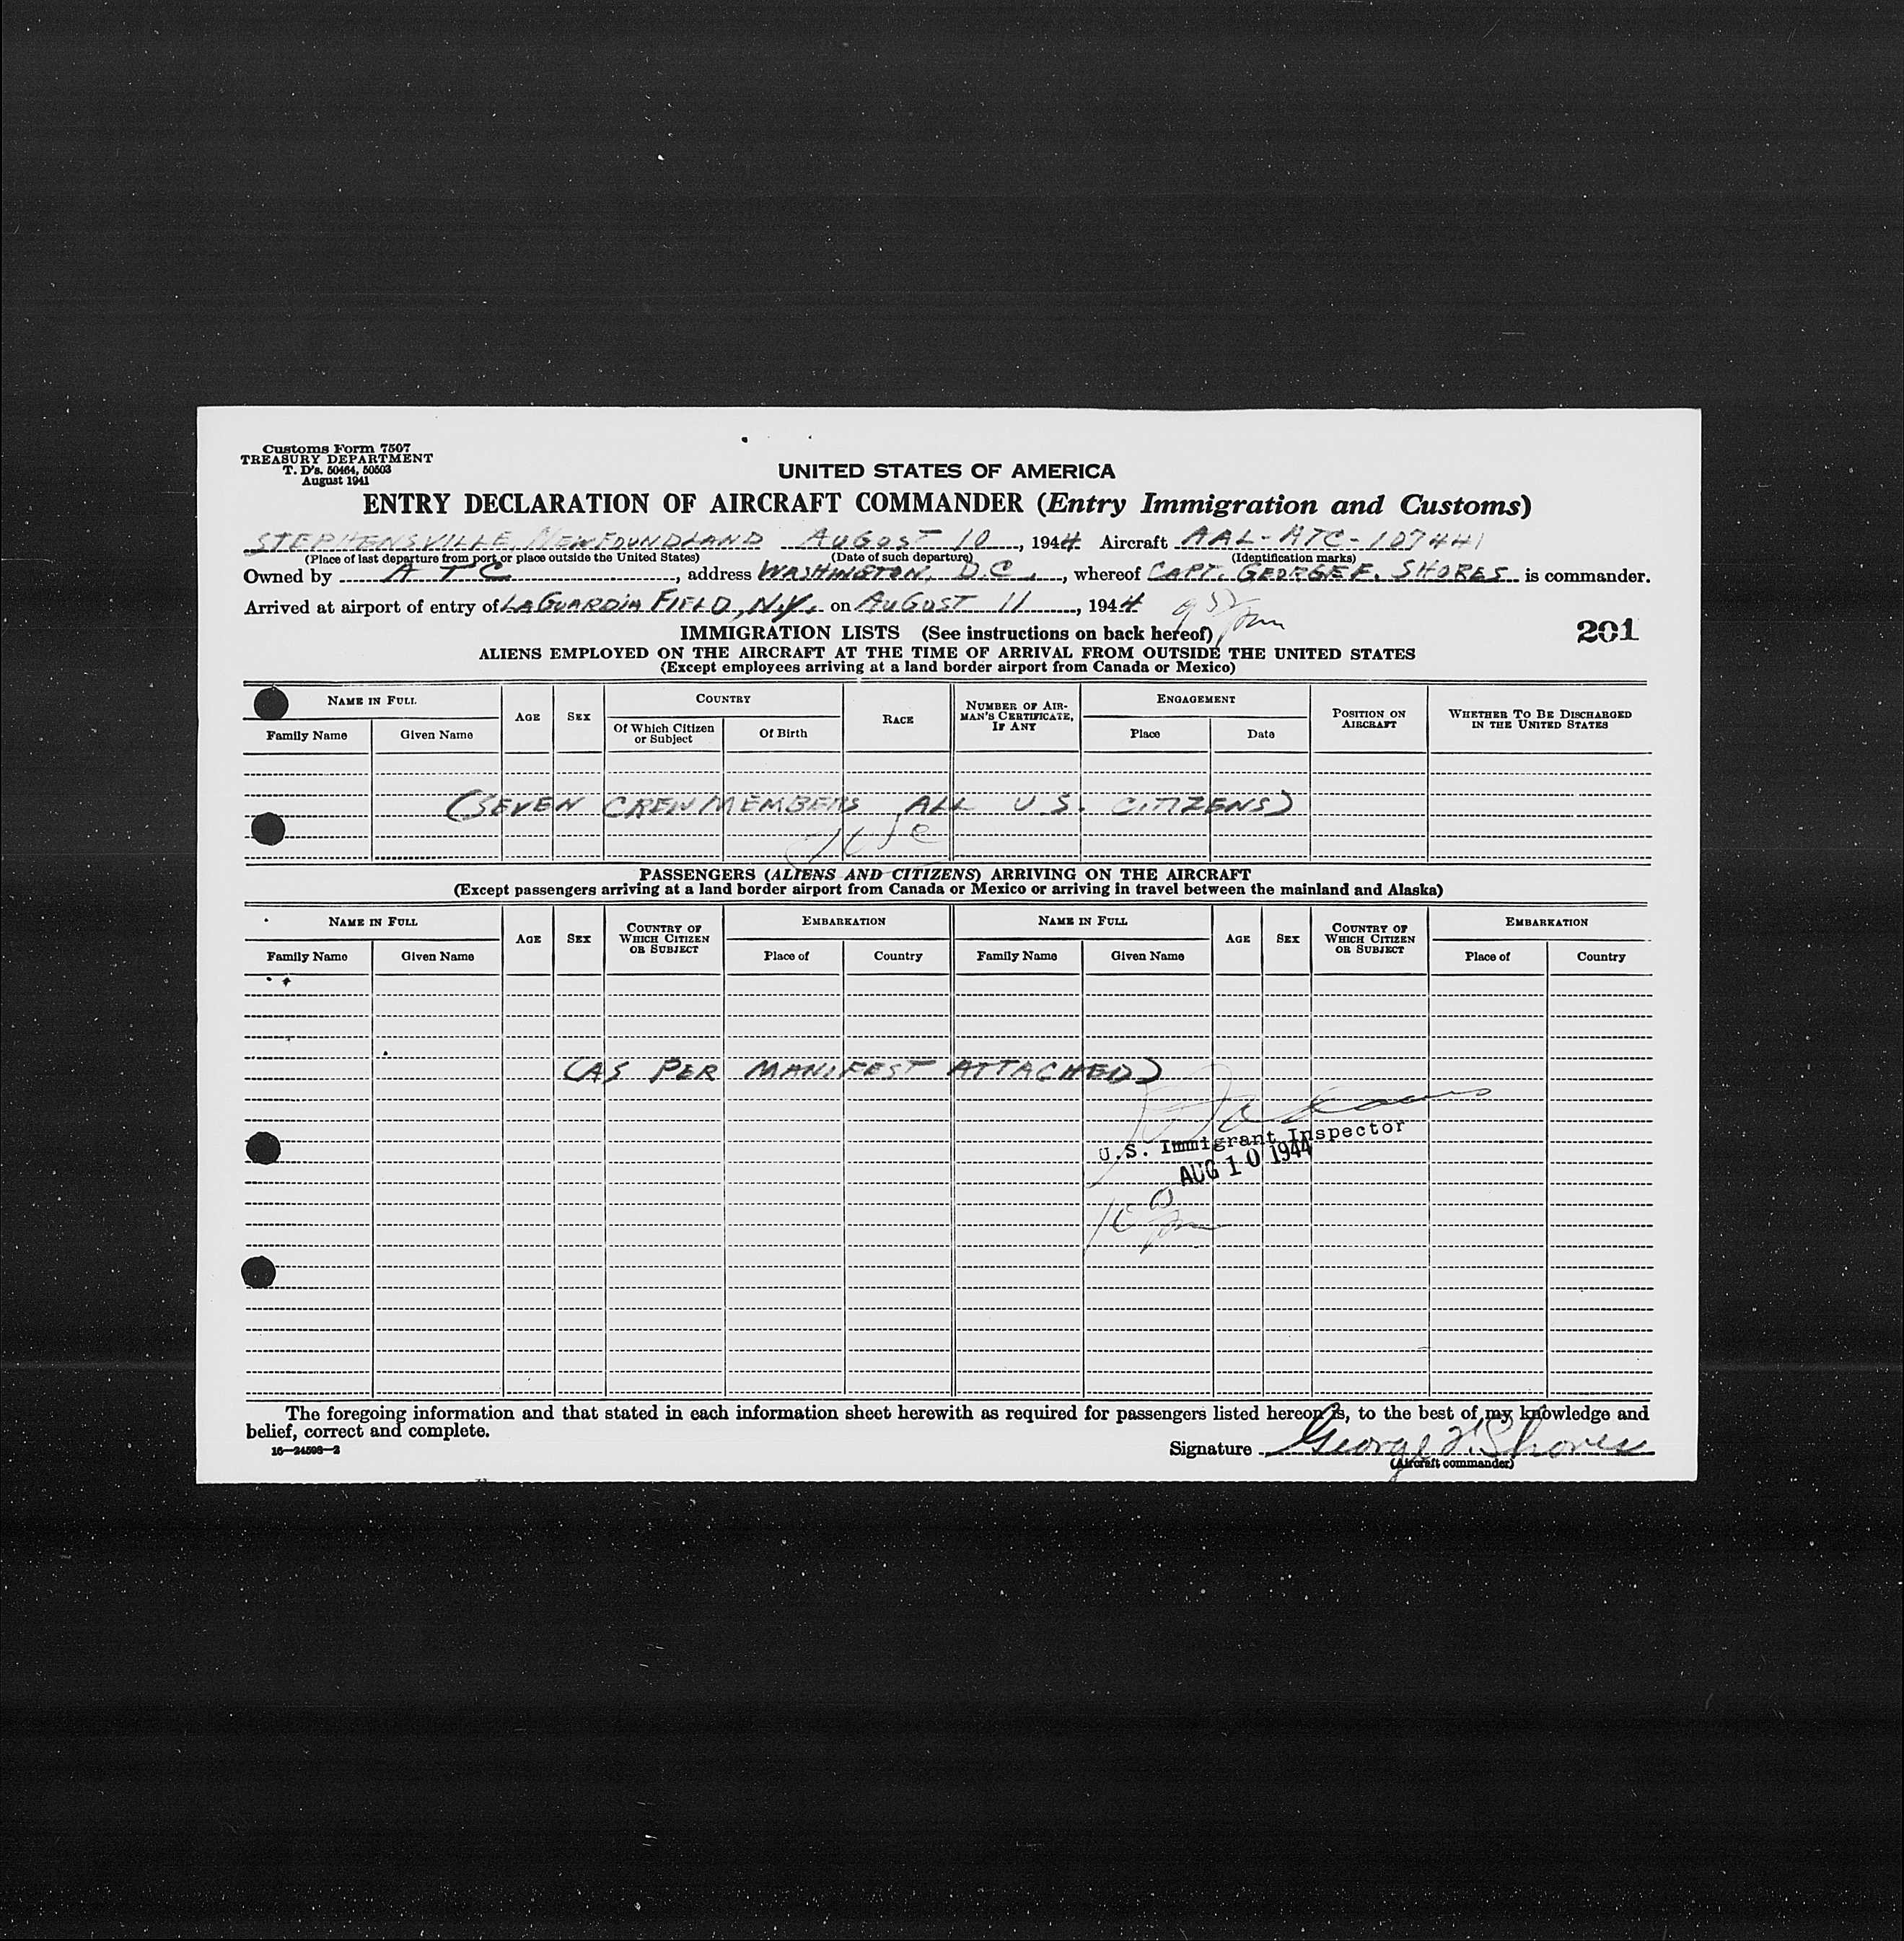 Customs Form 7507
TREASURY DEPARTMENT
T. D's. 50464, 50503
August 1941
UNITED STATES OF AMERICA
ENTRY DECLARATION OF AIRCRAFT COMMANDER (Entry Immigration and Customs)
STEPHENSVILLE, NEWFOUNDLAND AUGUST 10, 1944 Aircraft AAL-ATC-107441
(Place of last departure from port or place outside the United States) (Date of such departure) (Identification marks)
Owned by ATC, address WASHINGTON, D.C., whereof CAPT. GEORGE F. SHORES is commander.
Arrived at airport of entry of LAGUARDIA FIELD, N.Y. on AUGUST 11, 1944
IMMIGRATION LISTS (See instructions on back hereof)
201
ALIENS EMPLOYED ON THE AIRCRAFT AT THE TIME OF ARRIVAL FROM OUTSIDE THE UNITED STATES
(Except employees arriving at a land border airport from Canada or Mexico)
NAME IN FULL AGE SEX COUNTRY RACE NUMBER OF AIRMAN'S CERTIFICATE, IF ANY ENGAGEMENT POSITION ON AIRCRAFT WHETHER TO BE DISCHARGED IN THE UNITED STATES
Family Name Given Name Of Which Citizen or Subject Of Birth Place Date
(SEVEN CREW MEMBERS ALL U.S. CITIZENS)
PASSENGERS (ALIENS AND CITIZENS) ARRIVING ON THE AIRCRAFT
(Except passengers arriving at a land border airport from Canada or Mexico or arriving in travel between the mainland and Alaska)
NAME IN FULL AGE SEX COUNTRY OF WHICH CITIZEN OR SUBJECT EMBARKATION NAME IN FULL AGE SEX COUNTRY OF WHICH CITIZEN OR SUBJECT EMBARKATION
Family Name Given Name Place of Country Family Name Given Name Place of Country
(AS PER MANIFEST ATTACHED)
U.S. Immigrant Inspector
AUG 10 1944
The foregoing information and that stated in each information sheet herewith as required for passengers listed hereon is, to the best of my knowledge and
belief, correct and complete.
16—24598-2
Signature George F. Shores
(Aircraft commander)